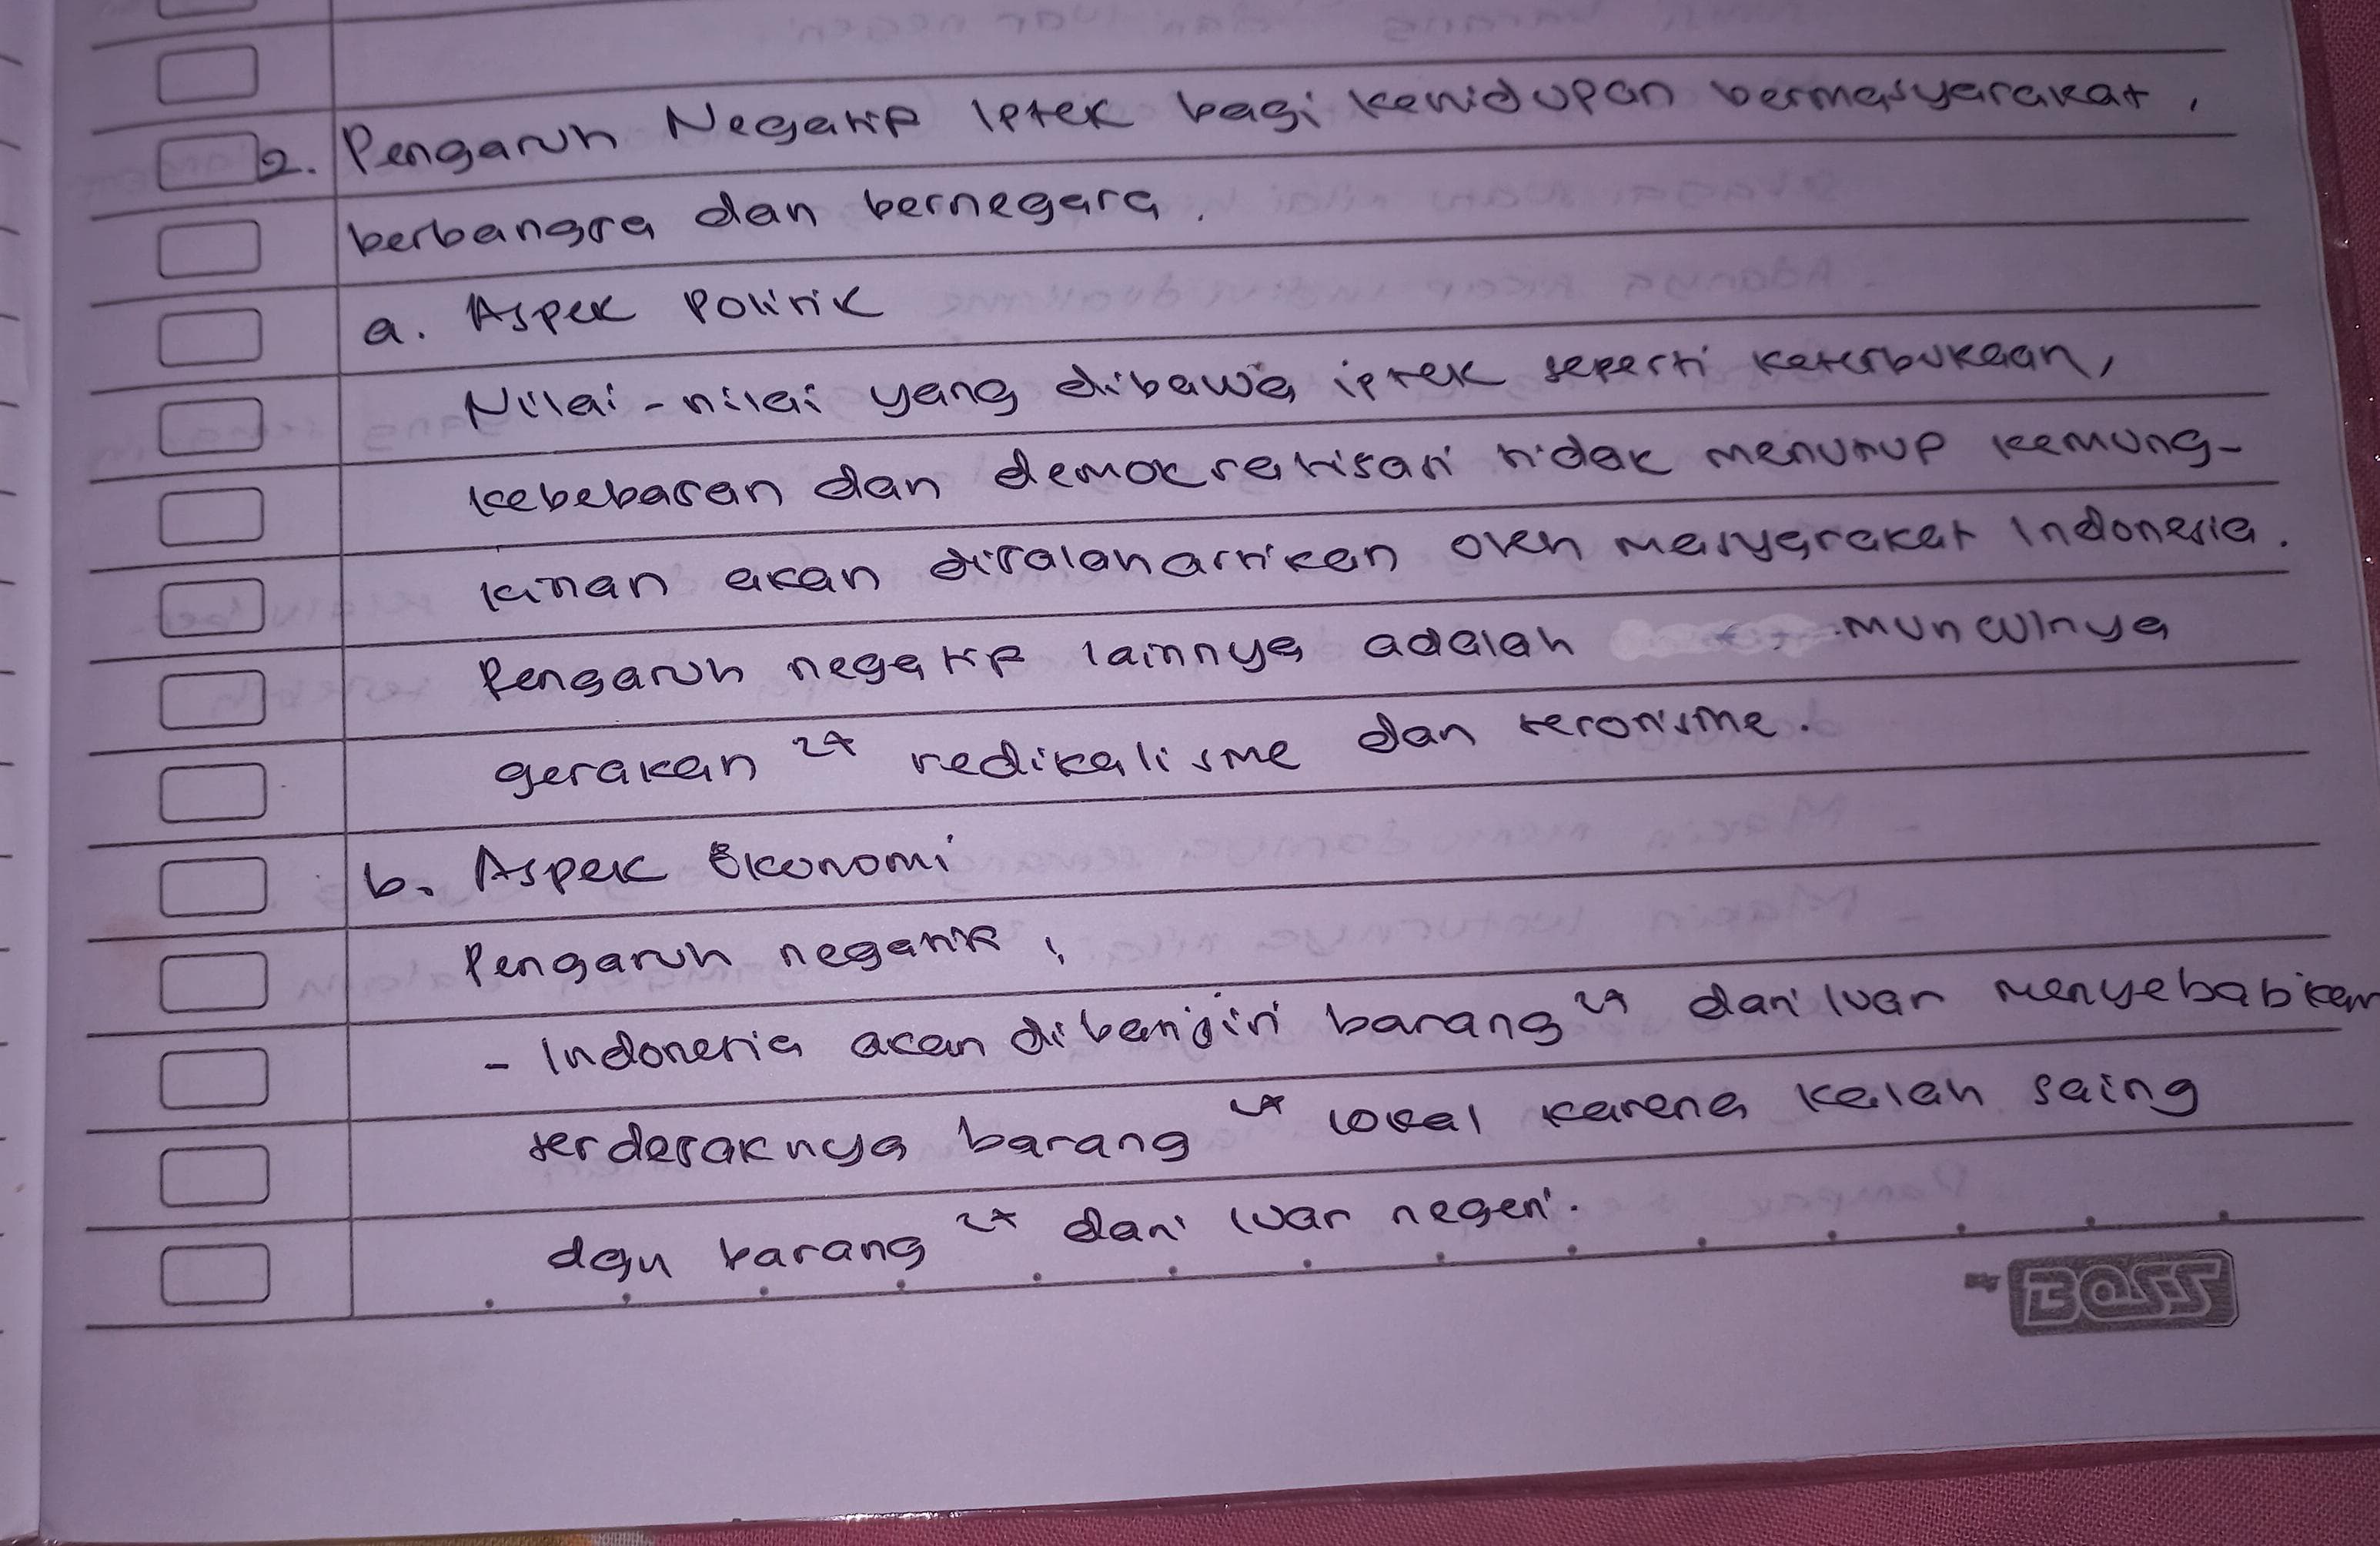 2. Pengaruh Negatif Iptek bagi kehidupan bermasyarakat,
berbangsa dan bernegara.
a. Aspek Politik
Nilai-nilai yang dibawa iptek seperti keterbukaan,
kebebasan dan demokratisasi tidak menutup kemung-
kinan akan disalahartikan oleh masyarakat Indonesia.
Pengaruh negatif lainnya adalah munculnya
gerakan 2x radikalisme dan terorisme.
b. Aspek Ekonomi
Pengaruh negatif :
- Indonesia akan dibanjiri barang 2x dari luar menyebabkan
terdesaknya barang 2x lokal karena kalah saing
dgn barang 2x dari luar negeri.
BOSS